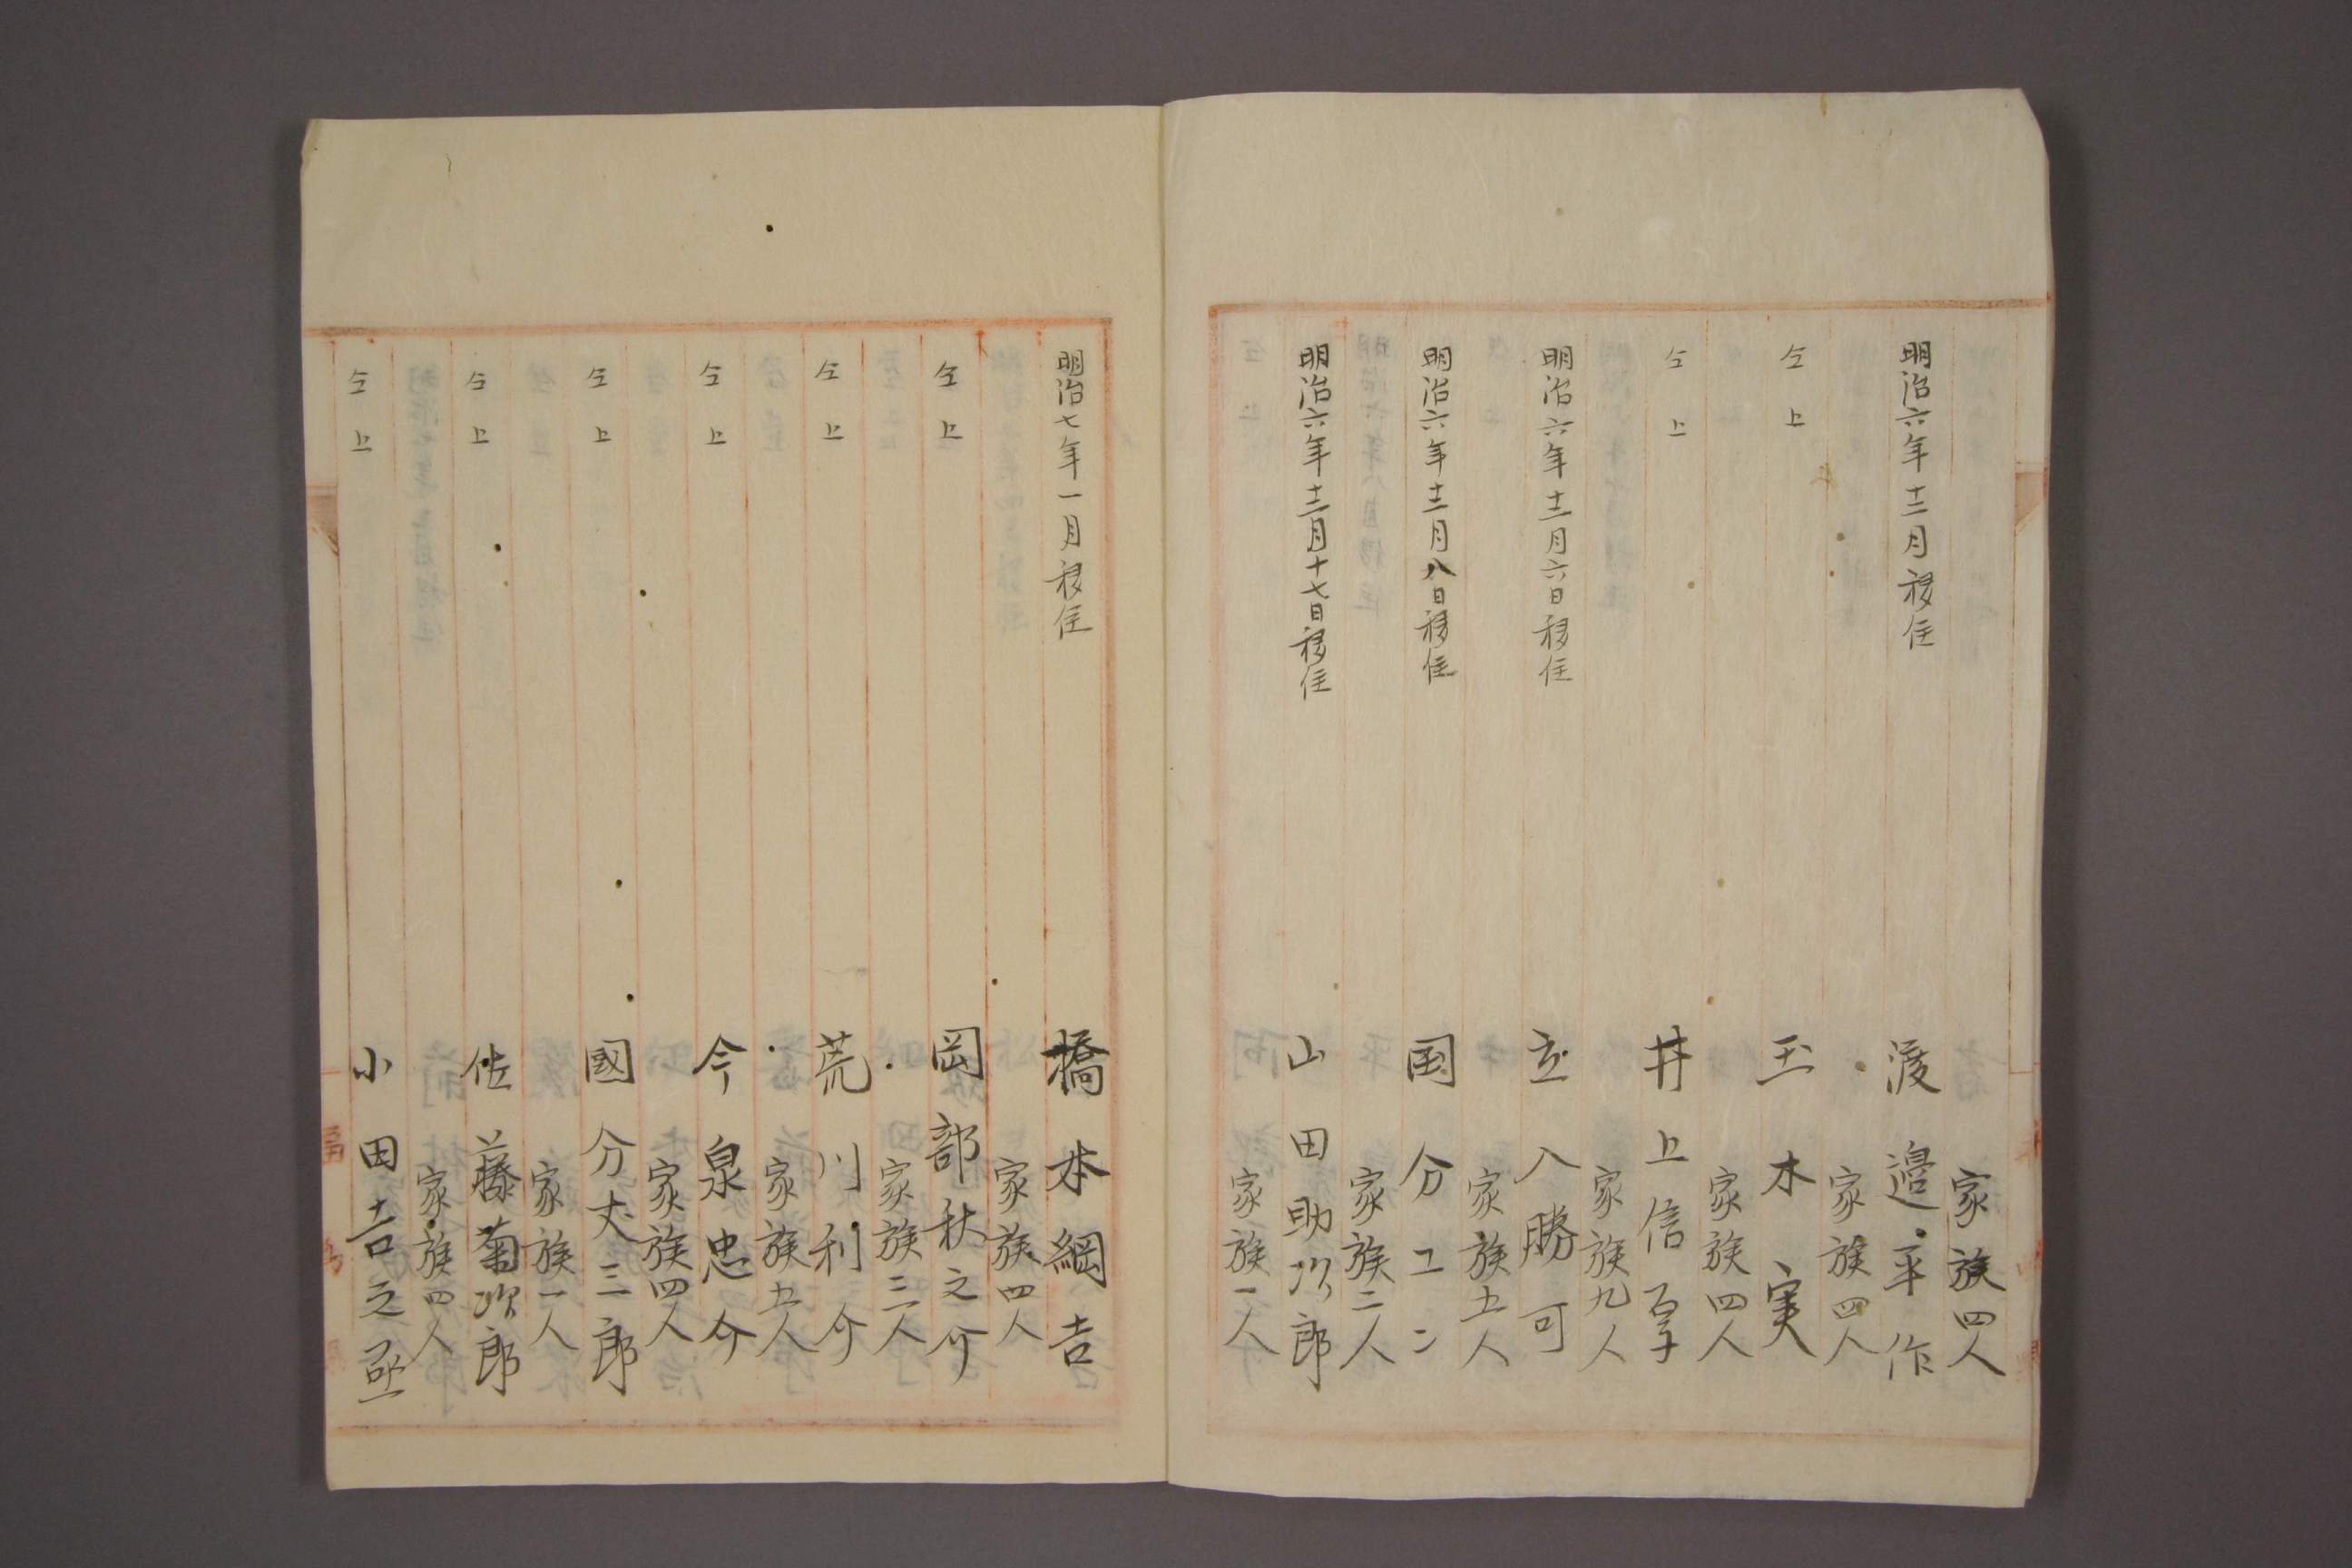 家族四人
明治六年十二月移住 渡邉平作
家族四人
仝上 玉木実
家族四人
仝上 井上信厚
家族九人
明治六年十二月六日移住 立入勝可
家族五人
明治六年十二月八日移住 国分エン
家族二人
明治六年十二月十七日移住 山田助次郎
家族一人
明治七年一月移住 橋本綱吉
家族四人
仝上 岡部秋之介
家族三人
仝上 荒川利介
家族五人
仝上 今泉忠介
家族四人
仝上 國分丈三郎
家族一人
仝上 佐藤菊次郎
家族四人
仝上 小田吉之丞